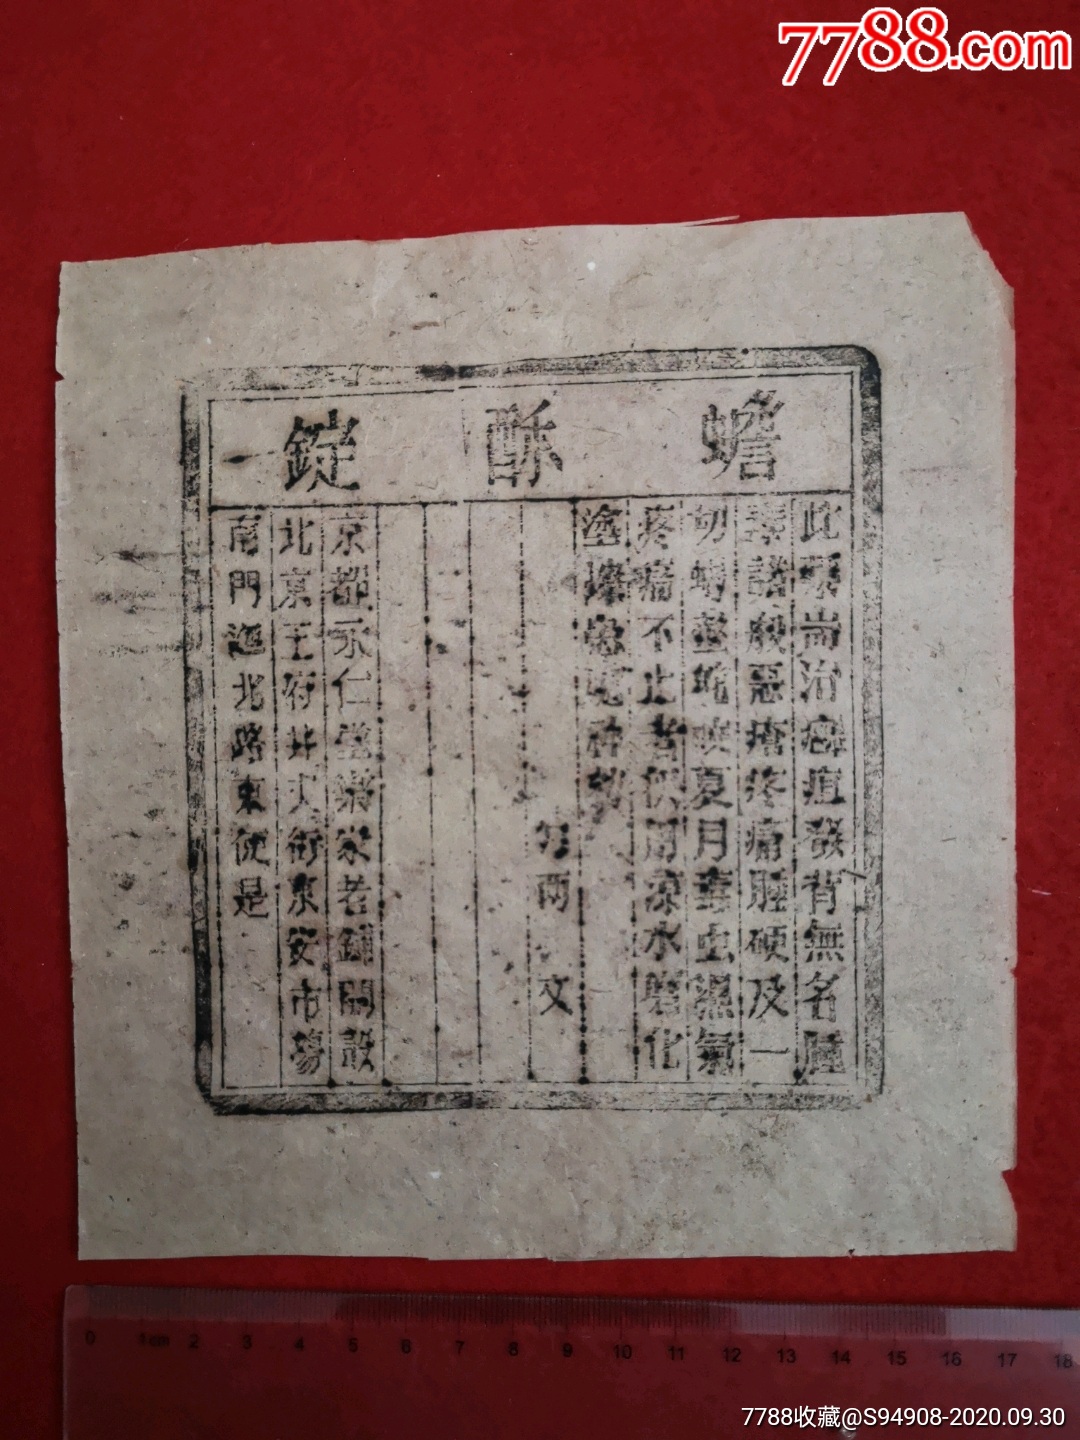 7788.com
蟾酥錠
此藥耑治癖疽發背無名腫
毒諸般惡瘡疼痛腫硬及一
切蛇夏月毒虫濕氣
疼痛不止者俱用涼水磨化
塗
每兩 文
京都永仁堂樂家老鋪開設
北京王府井大街東安市場
南門迤北路東便是
0 1cm 2 3 4 5 6 7 8 9 10 11 12 13 14 15 16 17 18
7788收藏@S94908-2020.09.30